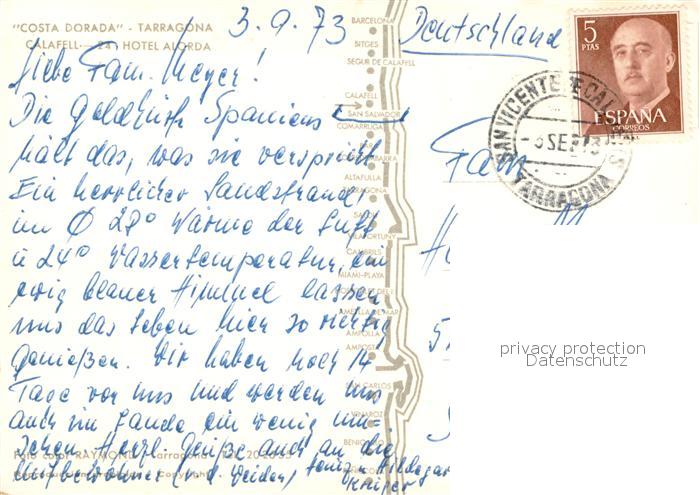 "COSTA DORADA" - TARRAGONA
CALAFELL - 24 HOTEL ALORDA
3.9.73
Deutschland
Liebe Fam. Meyer!
Die Goldküste Spaniens
hält das, was sie verspricht.
Ein herrlicher Sandstrand,
im Ø 28° Wärme der Luft
u 24° Wassertemperatur, ein
ewig blauer Himmel lassen
uns das Leben hier so richtig
genießen. Wir haben noch 14
Tage vor uns und werden uns
auch im Lande ein wenig um-
sehen. Herzl. Grüße auch an die
Mitbewohner
Hildegard
Fam
BARCELONA
SITGES
SEGUR DE CALAFELL
CALAFELL
SAN SALVADOR
COMARRUGA
ALTAFULLA
TARRAGONA
SALOU
VILAFORTUNY
CAMBRILS
MIAMI-PLAYA
AMETLLA DE MAR
AMPOLLA
AMPOSTA
SAN CARLOS
VINAROZ
Foto color RAYMOND - Tarragona
5
PTAS
ESPAÑA
CORREOS
SAN VICENTE DE CAL
TARRAGONA
privacy protection
Datenschutz